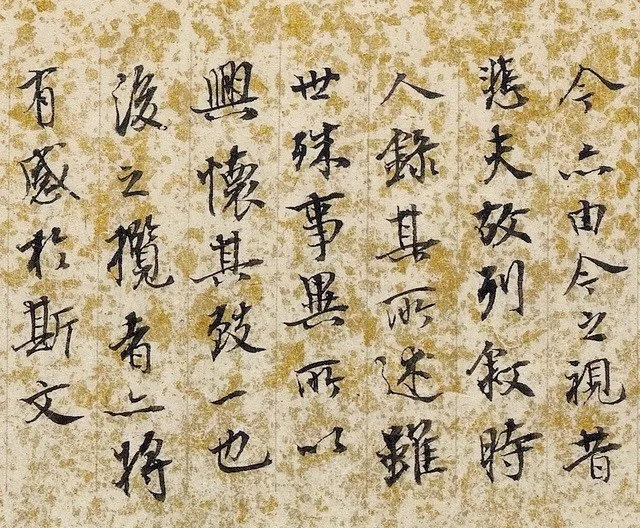 今亦由今之視昔
悲夫故列敘時
人錄其所述雖
世殊事異所以
興懷其致一也
後之攬者亦將
有感於斯文